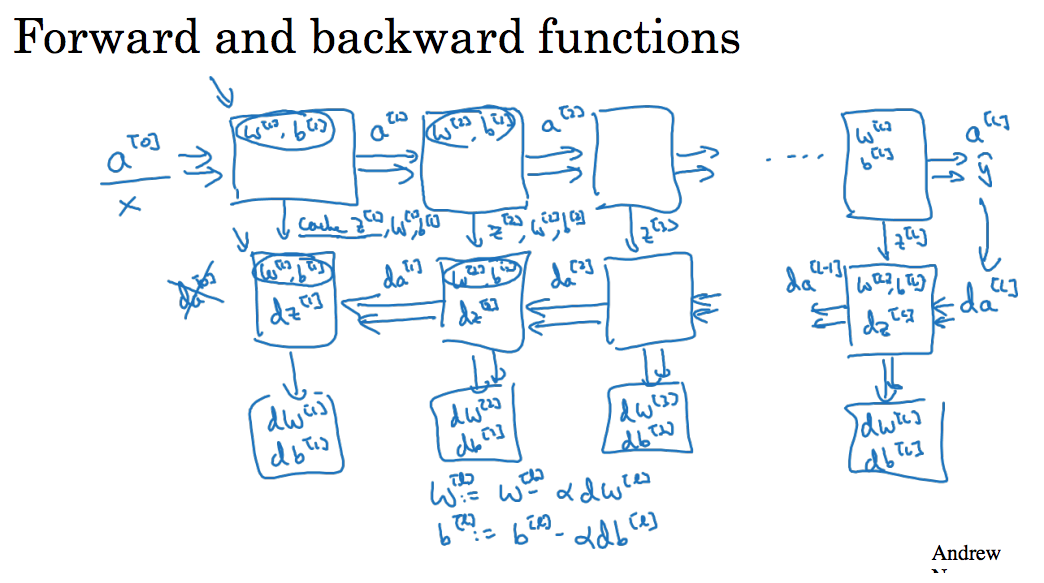 Forward and backward functions
a^[0]
x
w^[1], b^[1]
a^[1]
w^[2], b^[2]
a^[2]
....
w^[L]
b^[L]
a^[L]
ŷ
cache z^[1], w^[1], b^[1]
z^[2], w^[2], b^[2]
z^[3]
z^[L]
da^[0]
w^[1], b^[1]
dz^[1]
da^[1]
w^[2], b^[2]
dz^[2]
da^[2]
da^[L-1]
w^[L], b^[L]
dz^[L]
da^[L]
dw^[1]
db^[1]
dw^[2]
db^[2]
dw^[3]
db^[3]
dw^[L]
db^[L]
w^[l] := w^[l] - αdw^[l]
b^[l] := b^[l] - αdb^[l]
Andrew